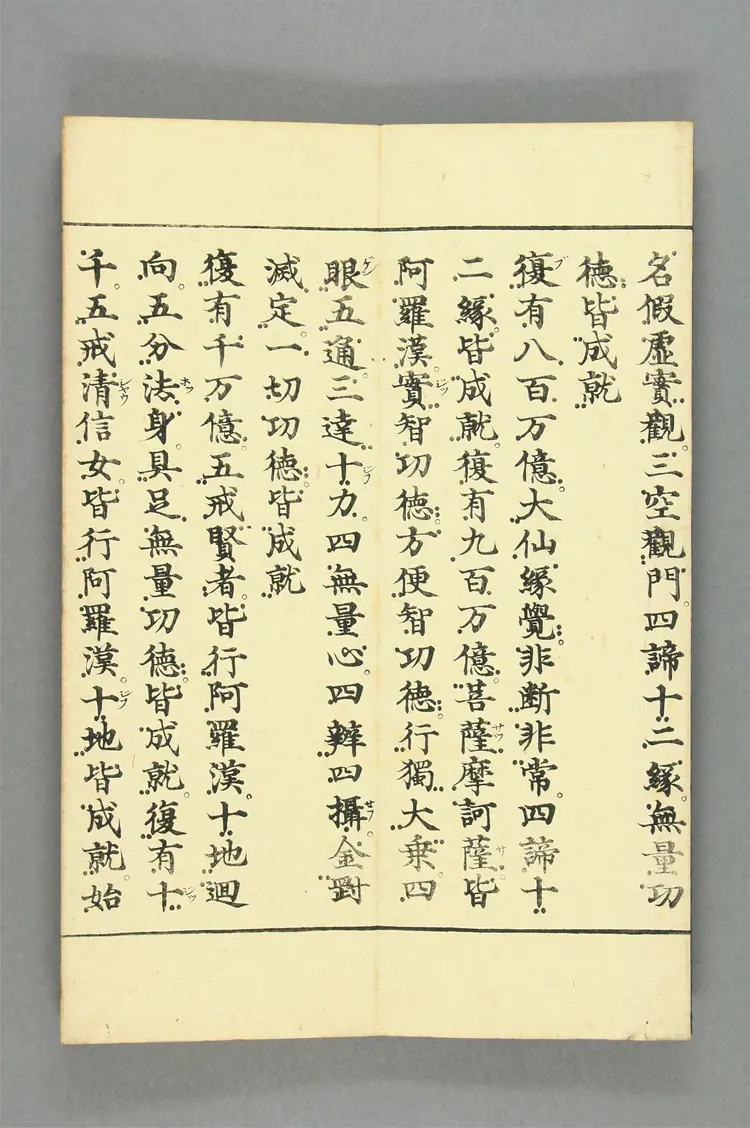 名假虛實觀三空觀門四諦十二緣無量功
德皆成就
復有八百万億大仙緣覺非断非常四諦十
二緣皆成就復有九百万億菩薩摩訶薩皆
阿羅漢實智功德方便智功德行獨大乗四
眼五通三達十力四無量心四辨四攝金剛
滅定一切功德皆成就
復有千万億五戒賢者皆行阿羅漢十地迴
向五分法身具足無量功德皆成就復有十
千五戒清信女皆行阿羅漢十地皆成就始